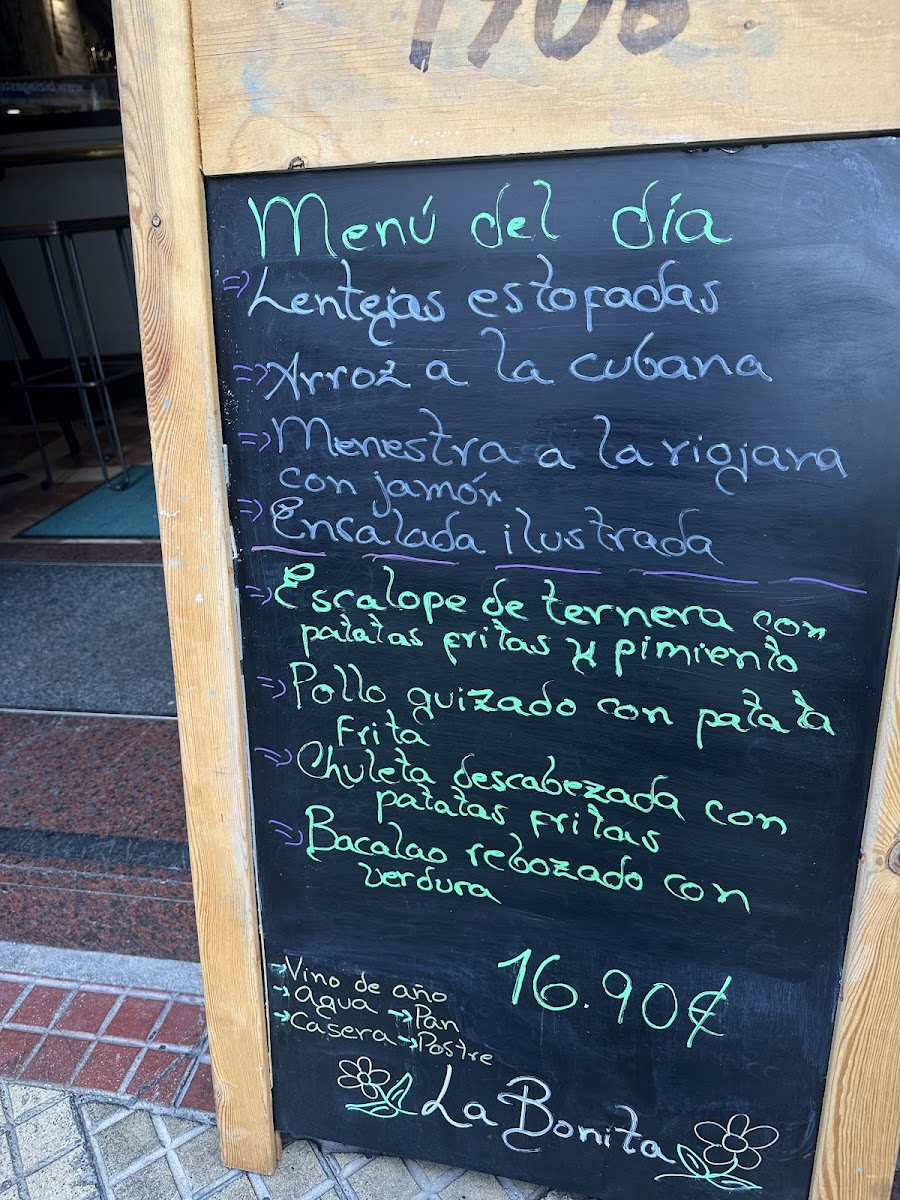 1906
Menú del día
⇒ Lentejas estofadas
⇒ Arroz a la cubana
⇒ Menestra a la riojana
con jamón
⇒ Ensalada ilustrada
⇒ Escalope de ternera con
patatas fritas y pimiento
⇒ Pollo guizado con patata
Frita
⇒ Chuleta descabezada con
patatas fritas
⇒ Bacalao rebozado con
verdura
16.90€
→ Vino de año
→ agua → Pan
→ casera → Postre
La Bonita